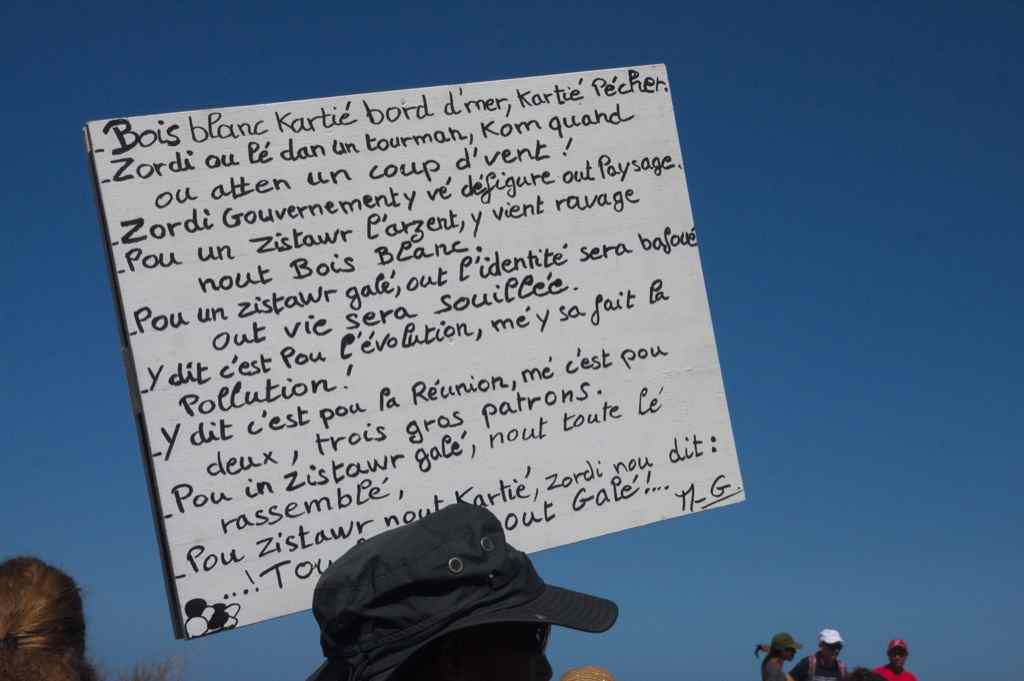 - Bois blanc Kartié bord d'mer, Kartié Pécher.
- Zordi ou lé dan un tourman, Kom quand
ou atten un coup d'vent !
- Zordi Gouvernement y vé défigure out Paysage.
- Pou un zistawr l'arzent, y vient ravage
nout Bois Blanc.
- Pou un zistawr galé, out l'identité sera bafoué
out vie sera souillée.
- Y dit c'est Pou l'évolution, mé y sa fait la
Pollution !
- Y dit c'est pou la Réunion, mé c'est pou
deux, trois gros patrons.
- Pou in zistawr galé, nout toute lé
rassemblé,
- Pou zistawr nout Kartié, Zordi nou dit :
...! out Galé !!...
M-G.